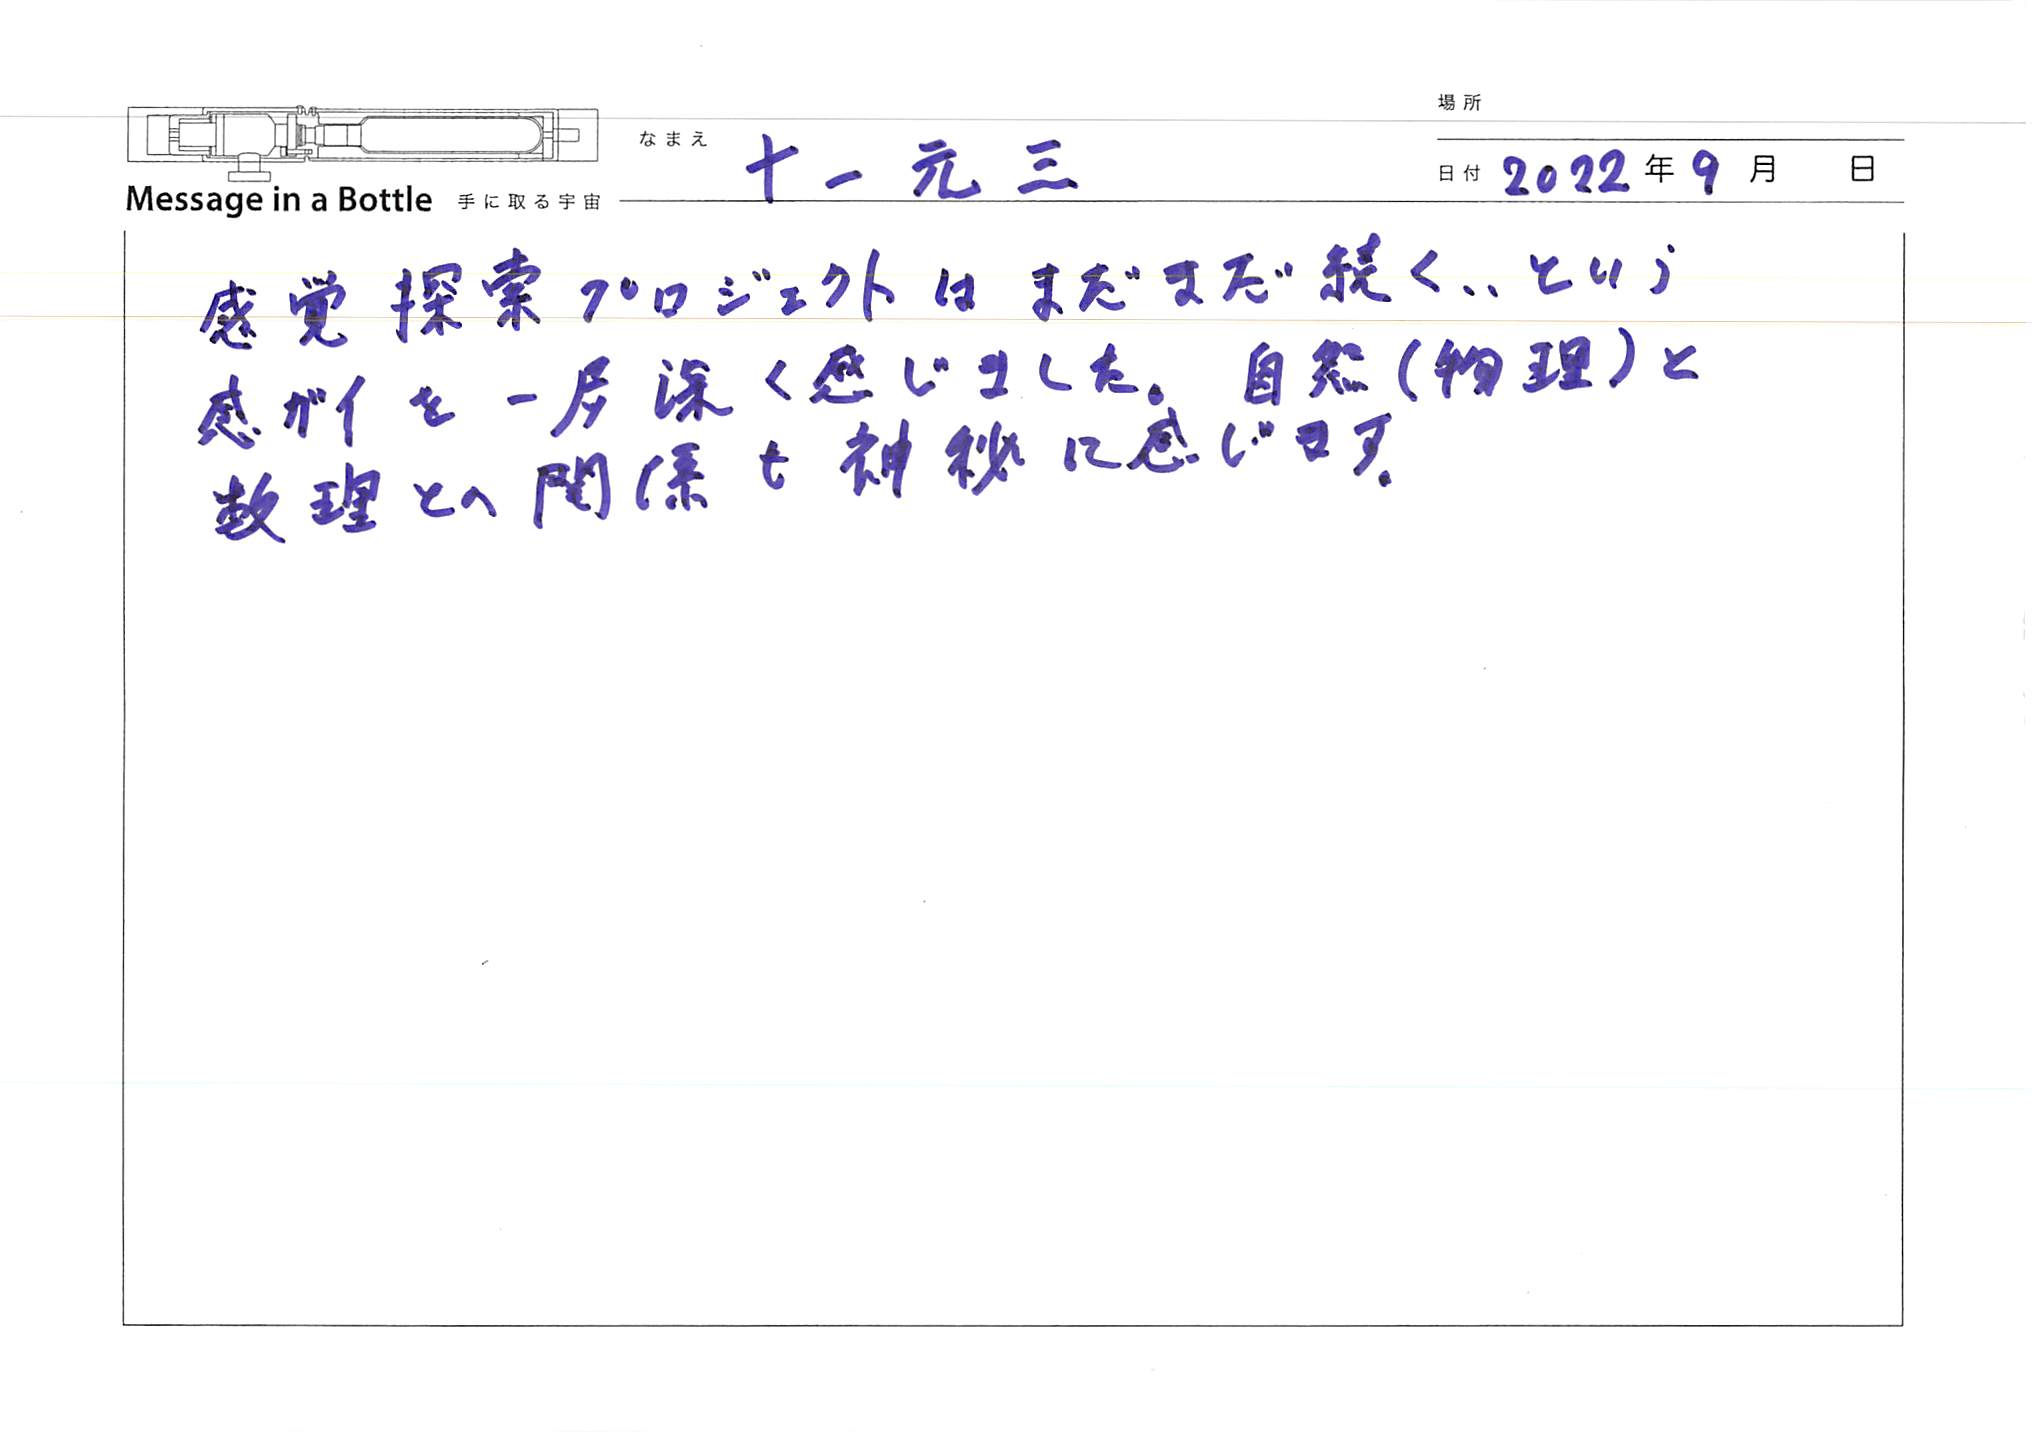 場所
なまえ 十一元三
日付 2022年9月 日
Message in a Bottle 手に取る宇宙
感覚探索プロジェクトはまだまだ続く..という
感ガイを一層深く感じました。自然(物理)と
数理との関係も神秘に感じます。